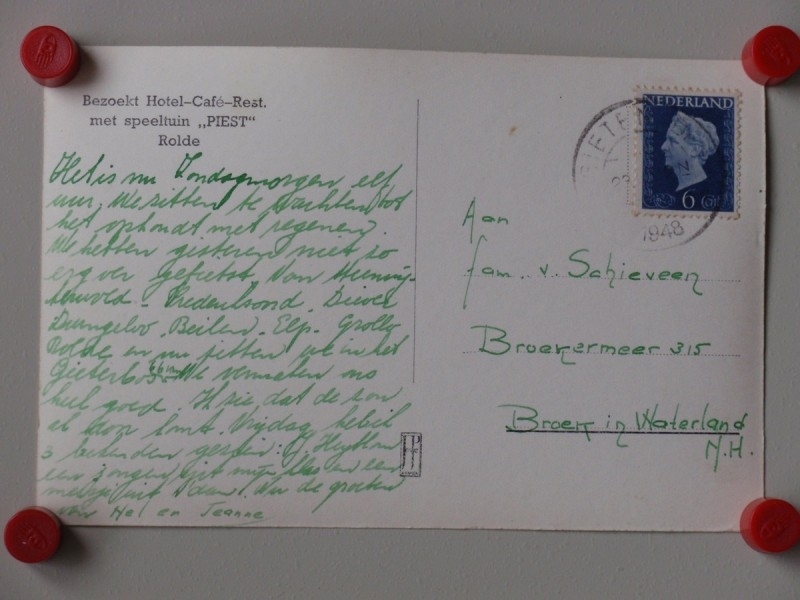 Bezoekt Hotel-Café-Rest.
met speeltuin „PIEST"
Rolde
Het is nu Zondagmorgen elf
uur. We zitten te wachten tot
het ophoudt met regenen.
We hebben gisteren niet zo
erg ver gefietst. Van
Diever
Dwingeloo. Beilen. Elp. Grollo
Rolde en nu zitten we in het
Gieterbos. We vermaken ons
heel goed. Ik zie dat de zon
al door komt. Vrijdag heb ik
3 bekenden gezien:
een jongen uit mijn klas en een
meisje uit de groeten
van Hel en Jeanne
NEDERLAND
6 Ct
GIETEN
1948
Aan
fam. v. Schieveen
Broekermeer 315
Broek in Waterland
N.H.